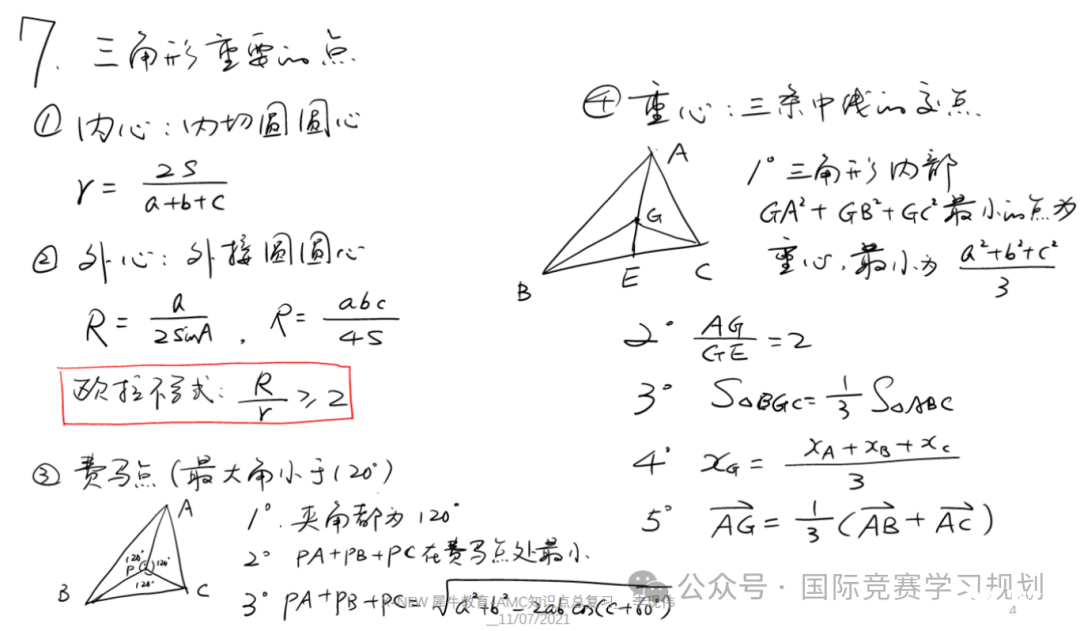 7. 三角形重要的点
① 内心：内切圆圆心
r = 2S / (a+b+c)
② 外心：外接圆圆心
R = a / 2sinA , R = abc / 4S
欧拉不等式：R/r ≥ 2
③ 费马点（最大角小于120°）
A
120°
P
120°
120°
B
C
1°. 夹角都为120°
2° PA+PB+PC在费马点处最小
3° PA+PB+PC = √(a²+b²-2ab cos(C+60°))
④ 重心：三条中线的交点
A
G
B
E
C
1° 三角形内部
GA²+GB²+GC²最小的点为
重心，最小为 (a²+b²+c²) / 3
2° AG/GE = 2
3° S△BGC = 1/3 S△ABC
4° x_G = (x_A+x_B+x_C) / 3
5° AG→ = 1/3 (AB→ + AC→)
NEW 犀牛教育 AMC知识点总复习
11/07/2021
公众号·国际竞赛学习规划
4